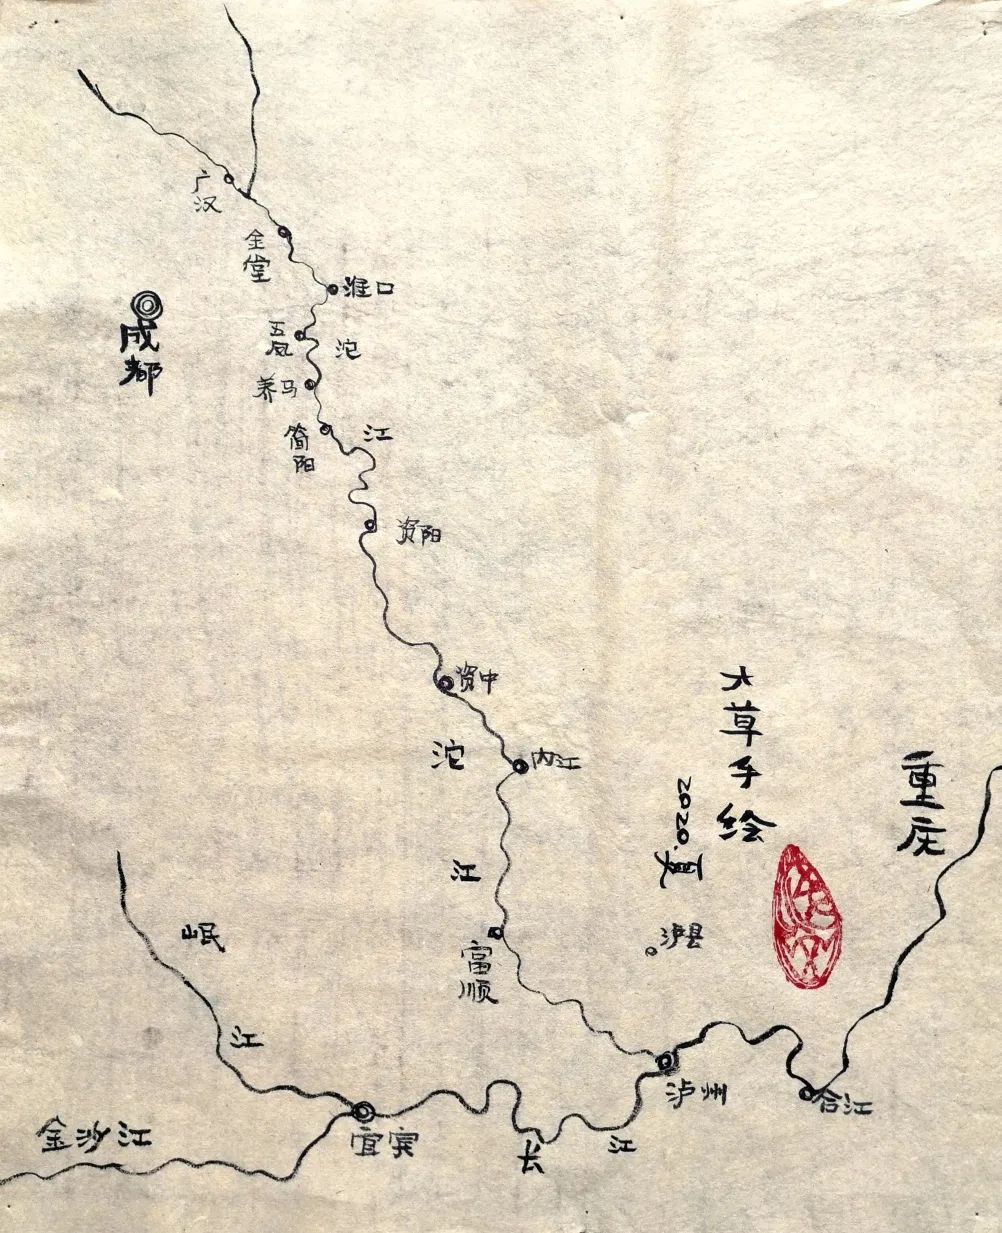 广汉
金堂
淮口
成都
五凤
沱
养马
简阳
江
资阳
资中
沱
内江
江
富顺
大草手绘
2020.夏
重庆
泸县
岷
江
金沙江
宜宾
长
江
泸州
合江